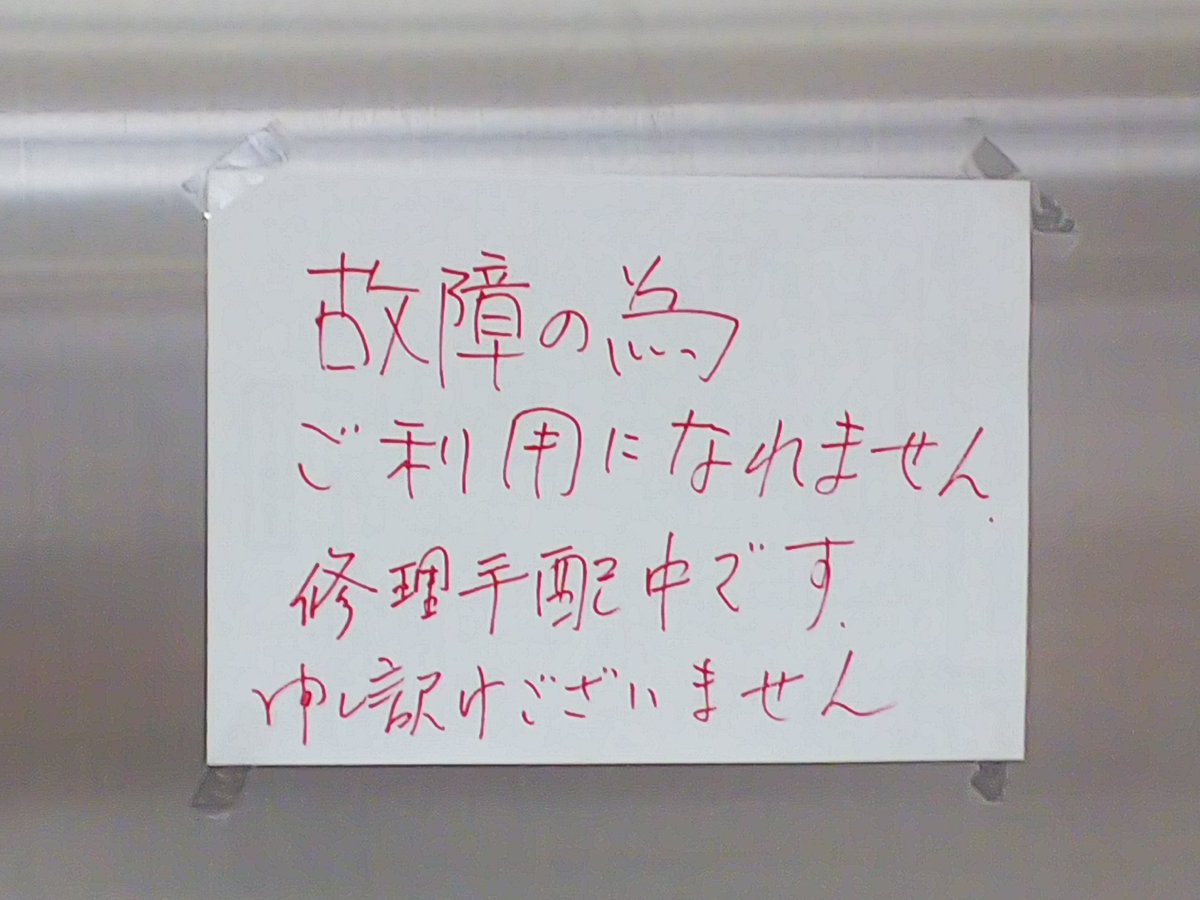 故障の為
ご利用になれません.
修理手配中です.
申し訳けございません